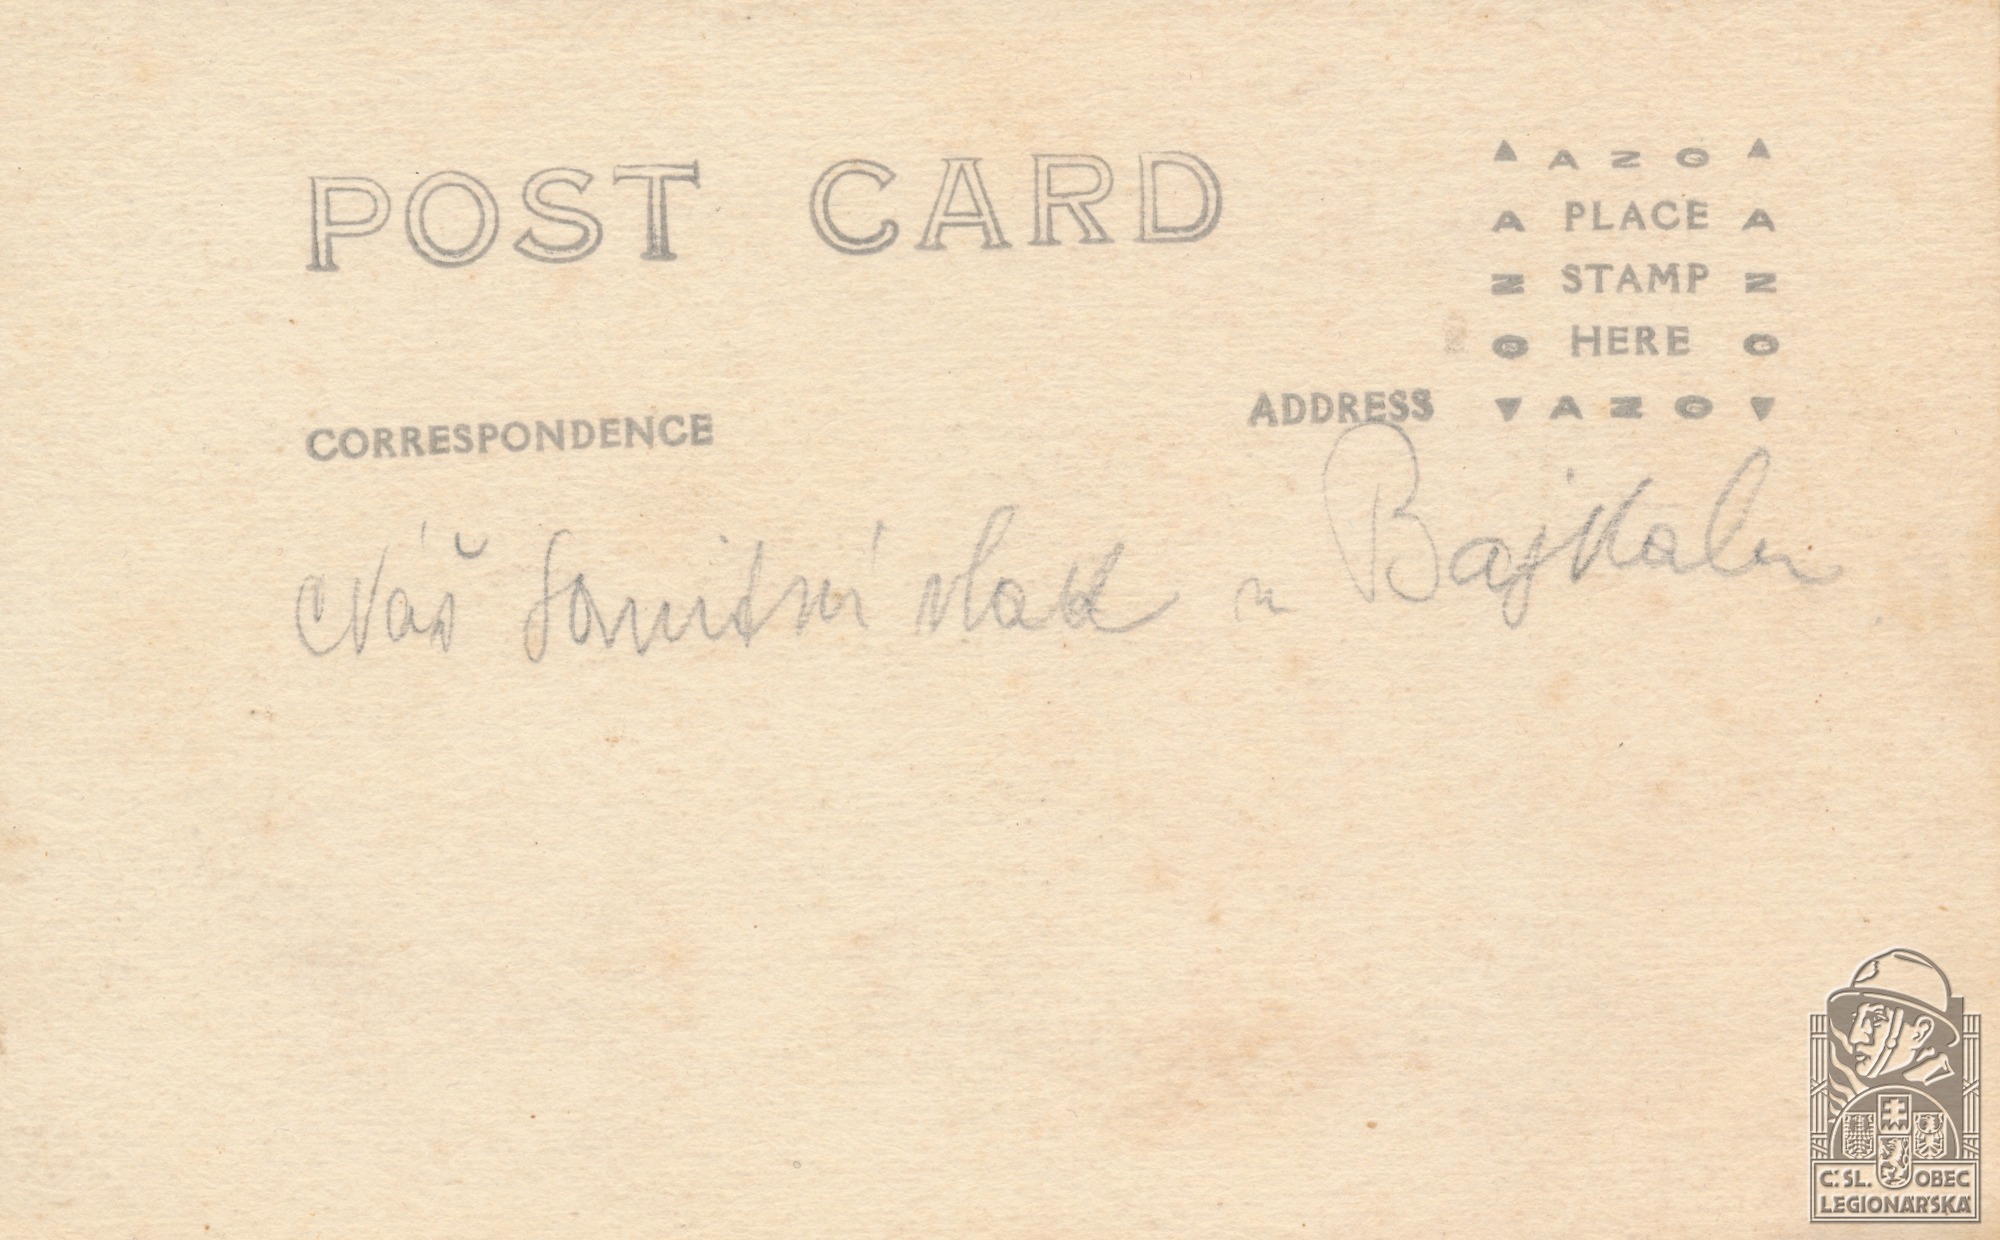 POST CARD
AZO
A PLACE A
N STAMP N
O HERE O
AZO
CORRESPONDENCE
ADDRESS
Náš sanitní vlak u Bajkalu
Č.SL. OBEC
LEGIONÁŘSKÁ